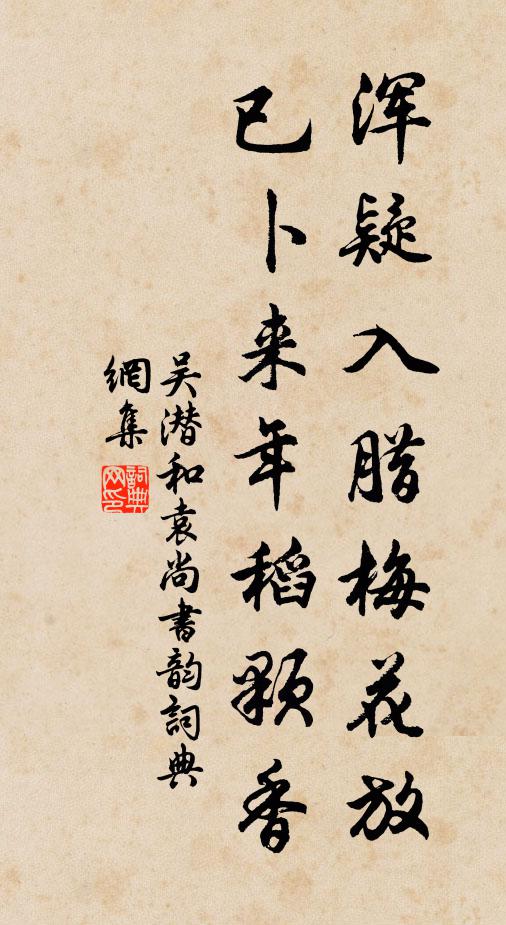 浑疑入腊梅花放
已卜来年稻颗香
吴潜和袁尚书韵詞典
網集
詞典網印